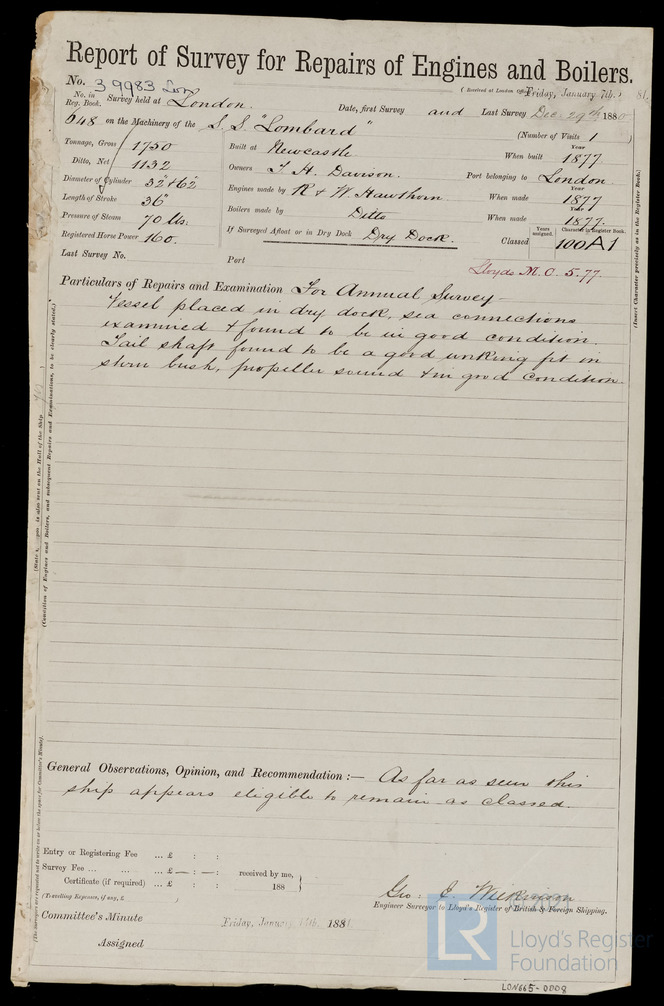 Report of Survey for Repairs of Engines and Boilers.
No. 39983 Lon
(Received at London Office Friday, January 7th. 81.
No. in Reg. Book. Survey held at London. Date, first Survey and Last Survey Dec. 29th 1880
648 on the Machinery of the S.S. "Lombard" (Number of Visits 1)
Tonnage, Gross 1750 Built at Newcastle When built Year 1877
Ditto, Net 1132 Owners T. H. Davison. Port belonging to London
Diameter of Cylinder 32" & 62" Engines made by R & W. Hawthorn When made Year 1877
Length of Stroke 36" Boilers made by Ditto When made Year 1877.
Pressure of Steam 70 lbs. If Surveyed Afloat or in Dry Dock Dry Dock. Classed Years assigned. Character in Register Book. 100A1
Registered Horse Power 160.
Last Survey No. Port Lloyds M.C. 5.77
Particulars of Repairs and Examination For Annual Survey-
Vessel placed in dry dock, sea connections
examined & found to be in good condition.
Tail shaft found to be a good working fit in
stern bush, propeller sound & in good condition.
General Observations, Opinion, and Recommendation :— As far as seen this
ship appears eligible to remain as classed.
Entry or Registering Fee ... £ : :
Survey Fee ... ... ... £ — : — :
Certificate (if required) ... £ : :
received by me,
188
(Travelling Expense, if any, £ )
Geo: E. Wilkinson
Engineer Surveyor to Lloyd's Register of British & Foreign Shipping.
Committee's Minute Friday, January 14th. 1881
Assigned
(Insert Character precisely as in the Register Book.)
(Condition of Engines and Boilers, and subsequent Repairs and Examinations, to be clearly stated.)
(The Surveyors are requested not to write on or below the space for Committee's Minute).
LR
Lloyd's Register
Foundation
LON665-0008